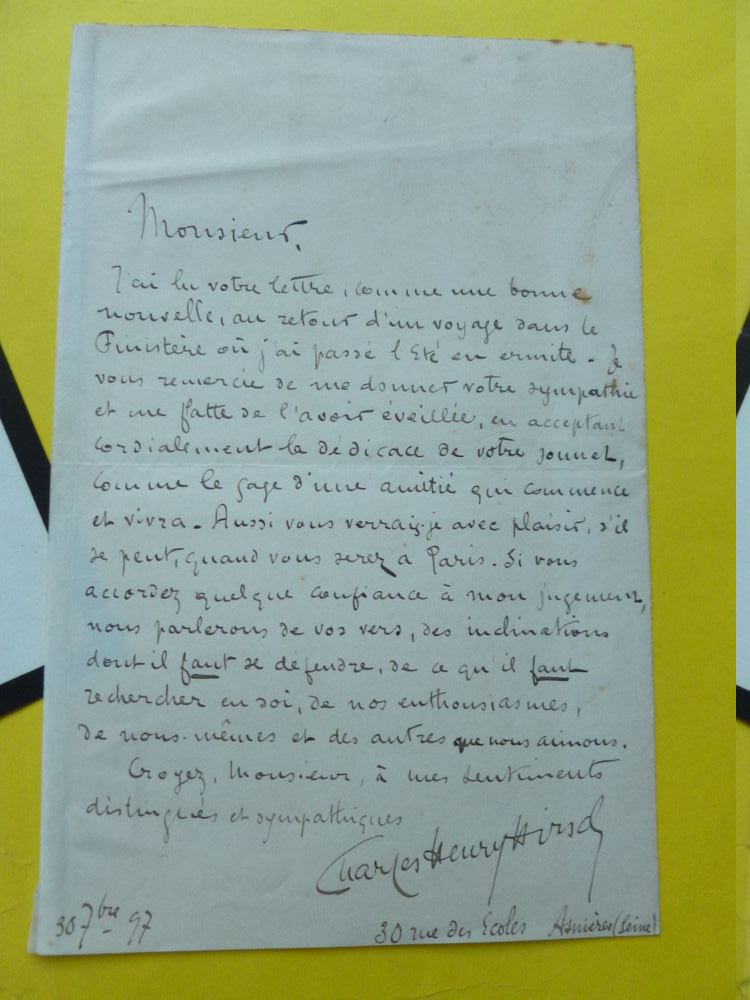 Monsieur,
J'ai lu votre lettre, comme une bonne
nouvelle, au retour d'un voyage dans le
Finistère où j'ai passé l'Eté en ermite - Je
vous remercie de me donner votre sympathie
et me flatte de l'avoir éveillée, en acceptant
cordialement la dédicace de votre sonnet,
comme le gage d'une amitié qui commence
et vivra - Aussi vous verrai-je avec plaisir, s'il
se peut, quand vous serez à Paris. Si vous
accordez quelque confiance à mon jugement,
nous parlerons de vos vers, des inclinations
dont il faut se défendre, de ce qu'il faut
rechercher en soi, de nos enthousiasmes,
de nous-mêmes et des autres que nous aimons.
Croyez, Monsieur, à mes sentiments
distingués et sympathiques
Charles Henry Hirsch
30 7bre 97
30 rue des Ecoles Asnières (Seine)